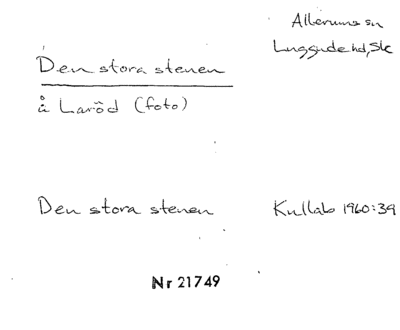 Allerums sn
Luggude hd, Sk
Den stora stenen
å Laröd (foto)
Den stora stenen Kullab 1960:39
Nr 21749